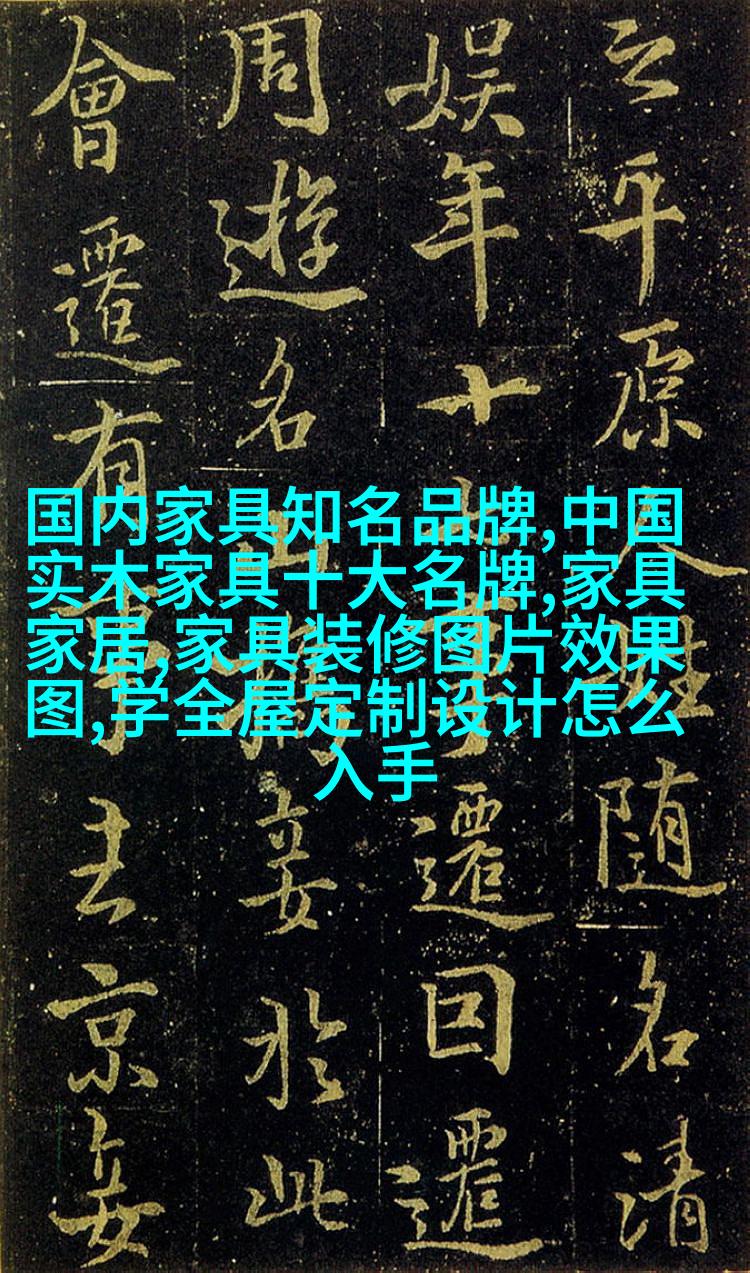 国内家具知名品牌,中国
实木家具十大名牌,家具
家居,家具装修图片效果
图,学全屋定制设计怎么
入手
之平原人姓随名清
娱年十七字遷回遷
周遊名山携妾於此
會遷有事去京妾